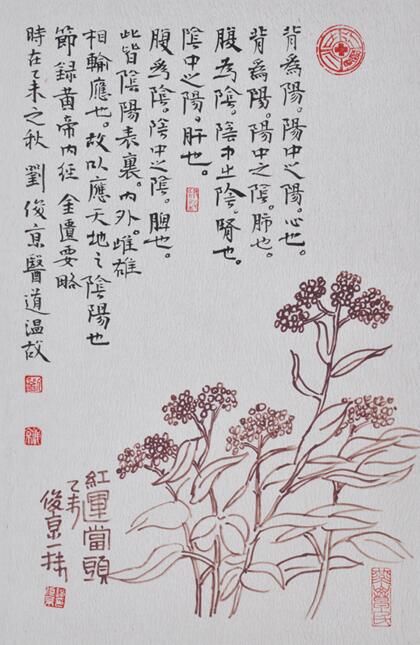 背為陽。陽中之陽。心也。
背爲陽。陽中之陰。肺也。
腹为陰。陰中之陰。腎也。
陰中之陽。肝也。
腹为陰。陰中之陰。脾也。
此皆陰陽表裏。内外。雌雄
相輸應也。故以應天地之陰陽也
節録黄帝内经 金遺要略
時在乙未之秋 劉俊京醫道温故
紅運當頭
乙未
俊京抹